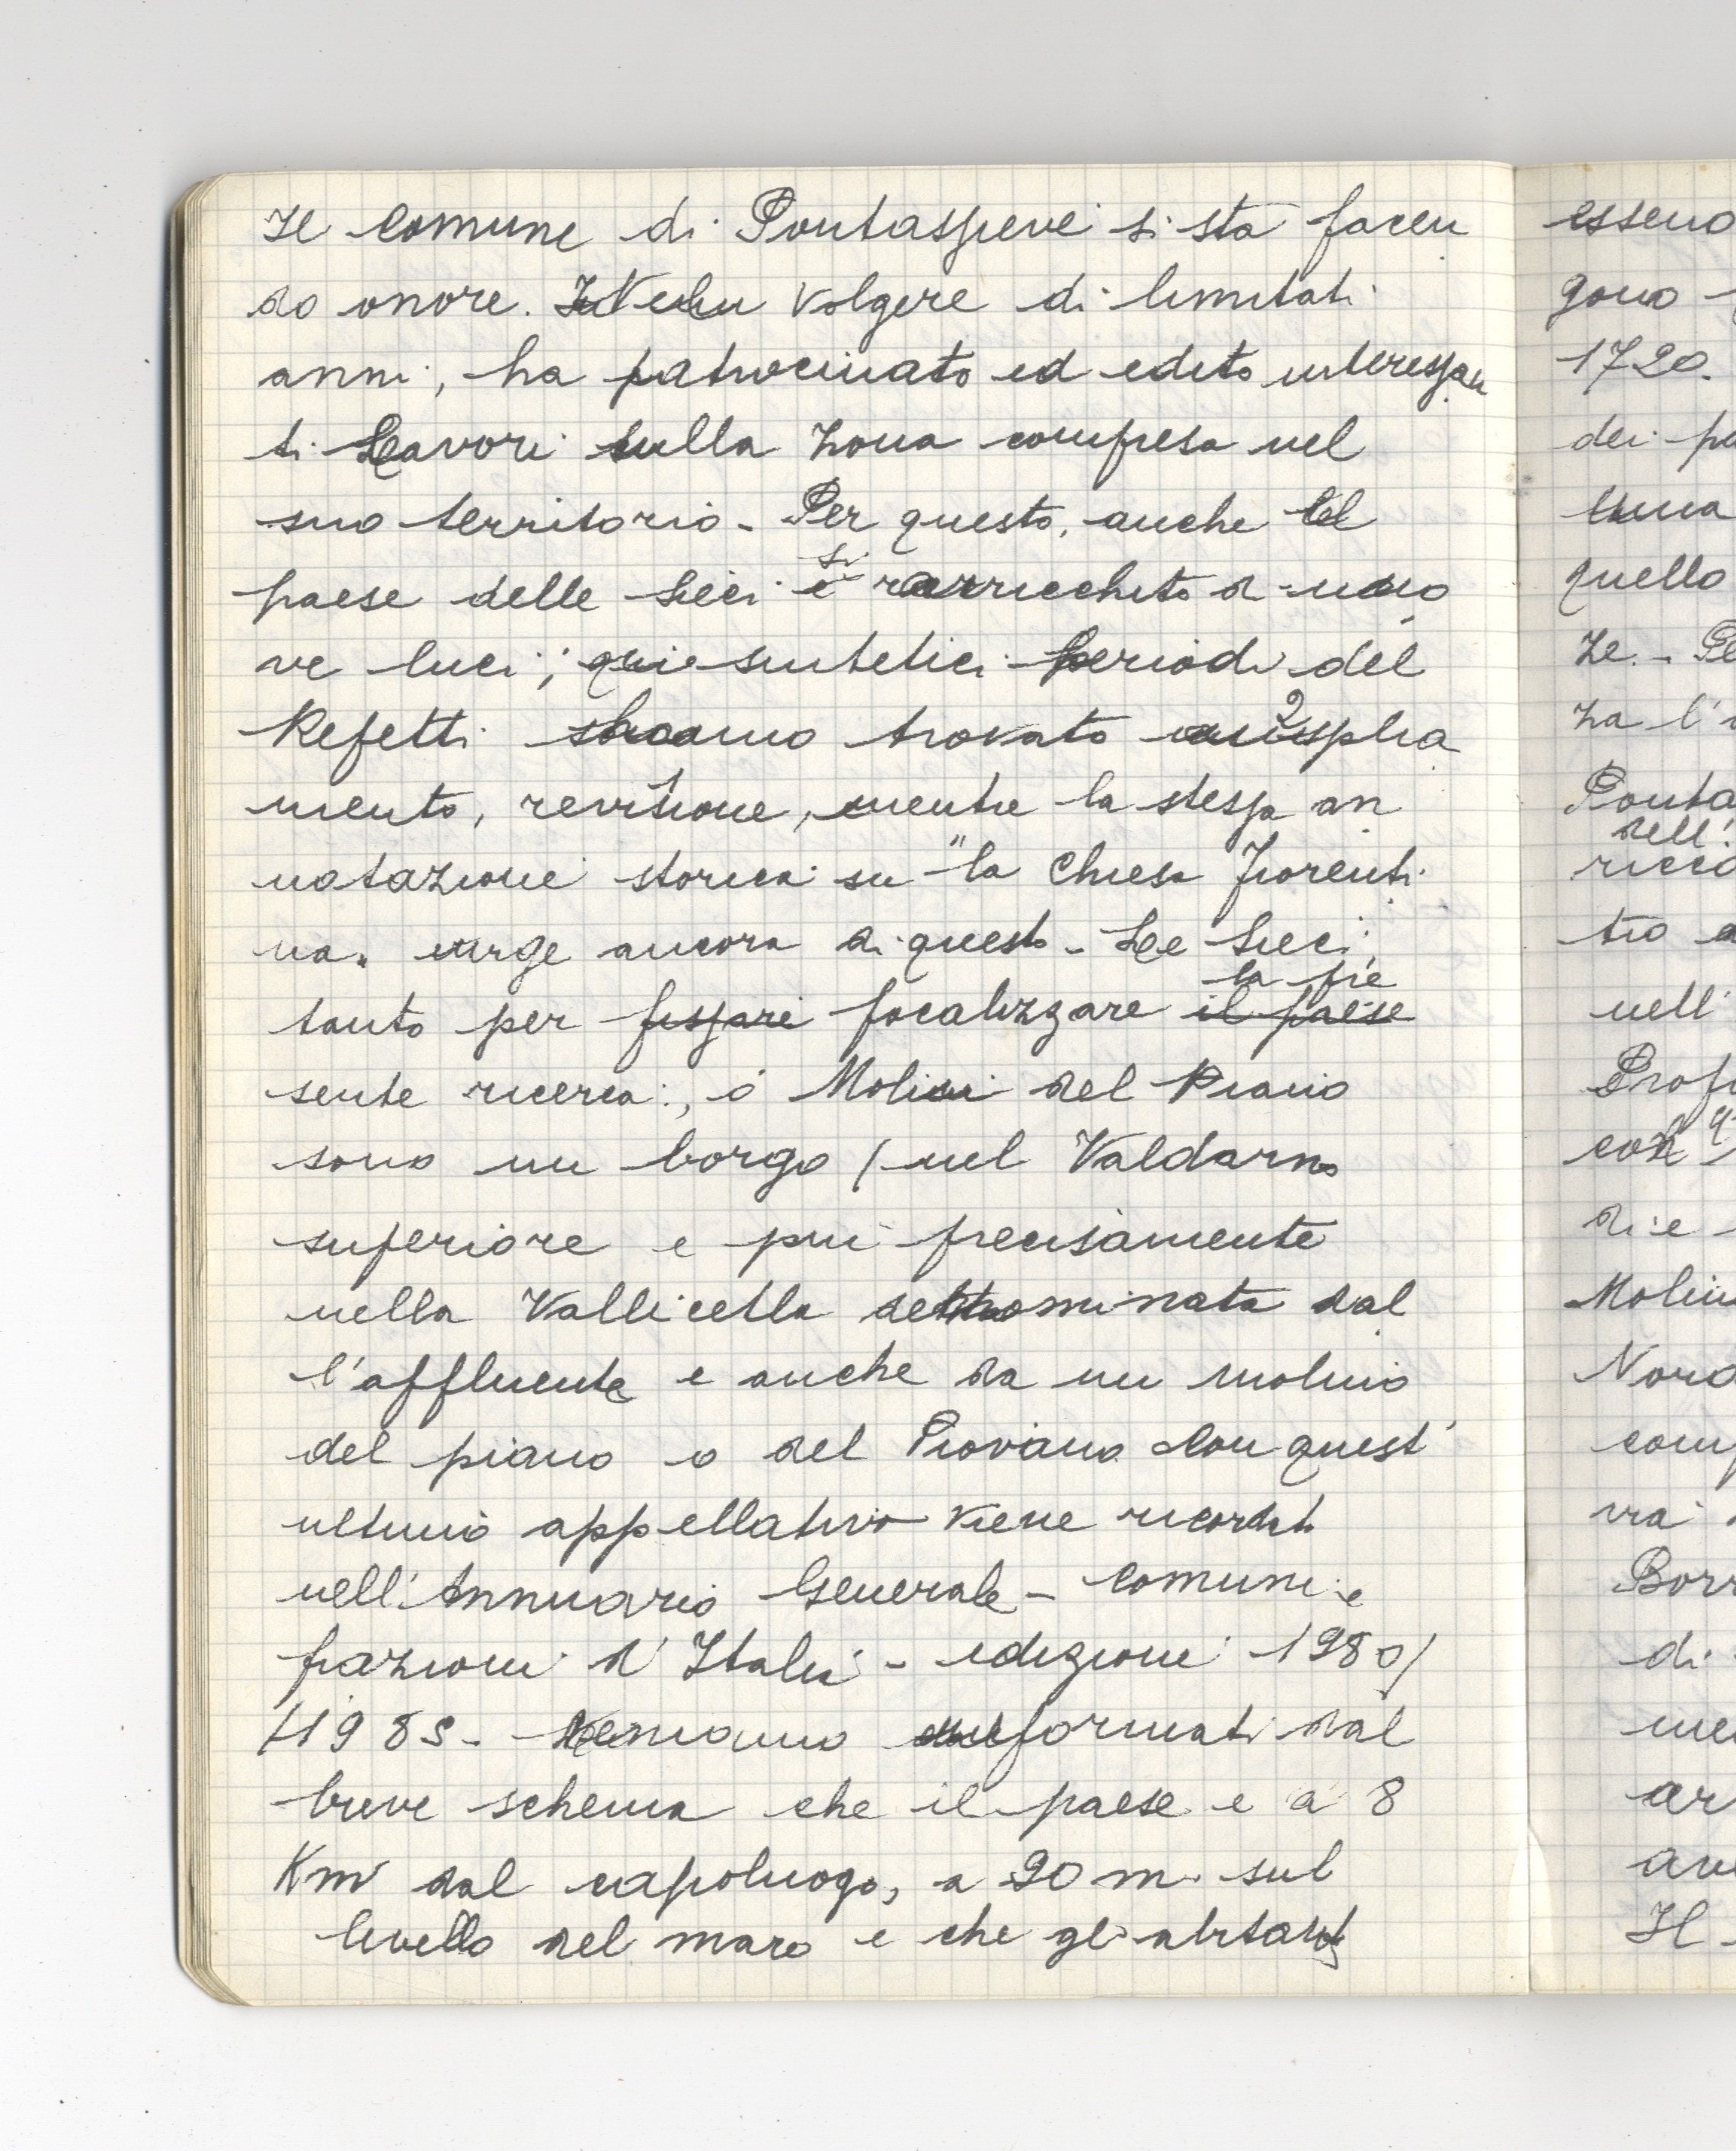 Il Comune di Pontassieve si sta facen
do onore. Nel volgere di limitati
anni, ha patrocinato ed edito interessan
ti Lavori sulla zona compresa nel
suo territorio - Per questo, anche il
paese delle Sieci si è arricchito di nuo
ve luci; i sintetici periodi del
Repetti hanno trovato amplia
mento, revisione, mentre la stessa an
notazione storica su "la Chiesa Fiorenti
na" urge ancora di questo - Le Sieci,
tanto per fissare focalizzare il paese la pre
sente ricerca:, o Molini del Piano
sono un borgo (nel Valdarno
superiore e più precisamente
nella Vallicella denominata dal
l'affluente e anche da un molino
del piano o del Piovano. Con quest'
ultimo appellativo viene ricordat
nell'Annuario Generale - Comuni e
frazioni d'Italia - edizione 1980/
1985 - Veniamo informati dal
breve schema che il paese e a 8
Km dal capoluogo, a 90 m. sul
livello del mare e che gli abitanti
esseno
gono
1720.
dei
quello
ze. - Pe
za l'
Ponta
dell'
ricco
tro
nell'
Prop
con
di e
Molin
Nord
com
Borr
di
ar
Il